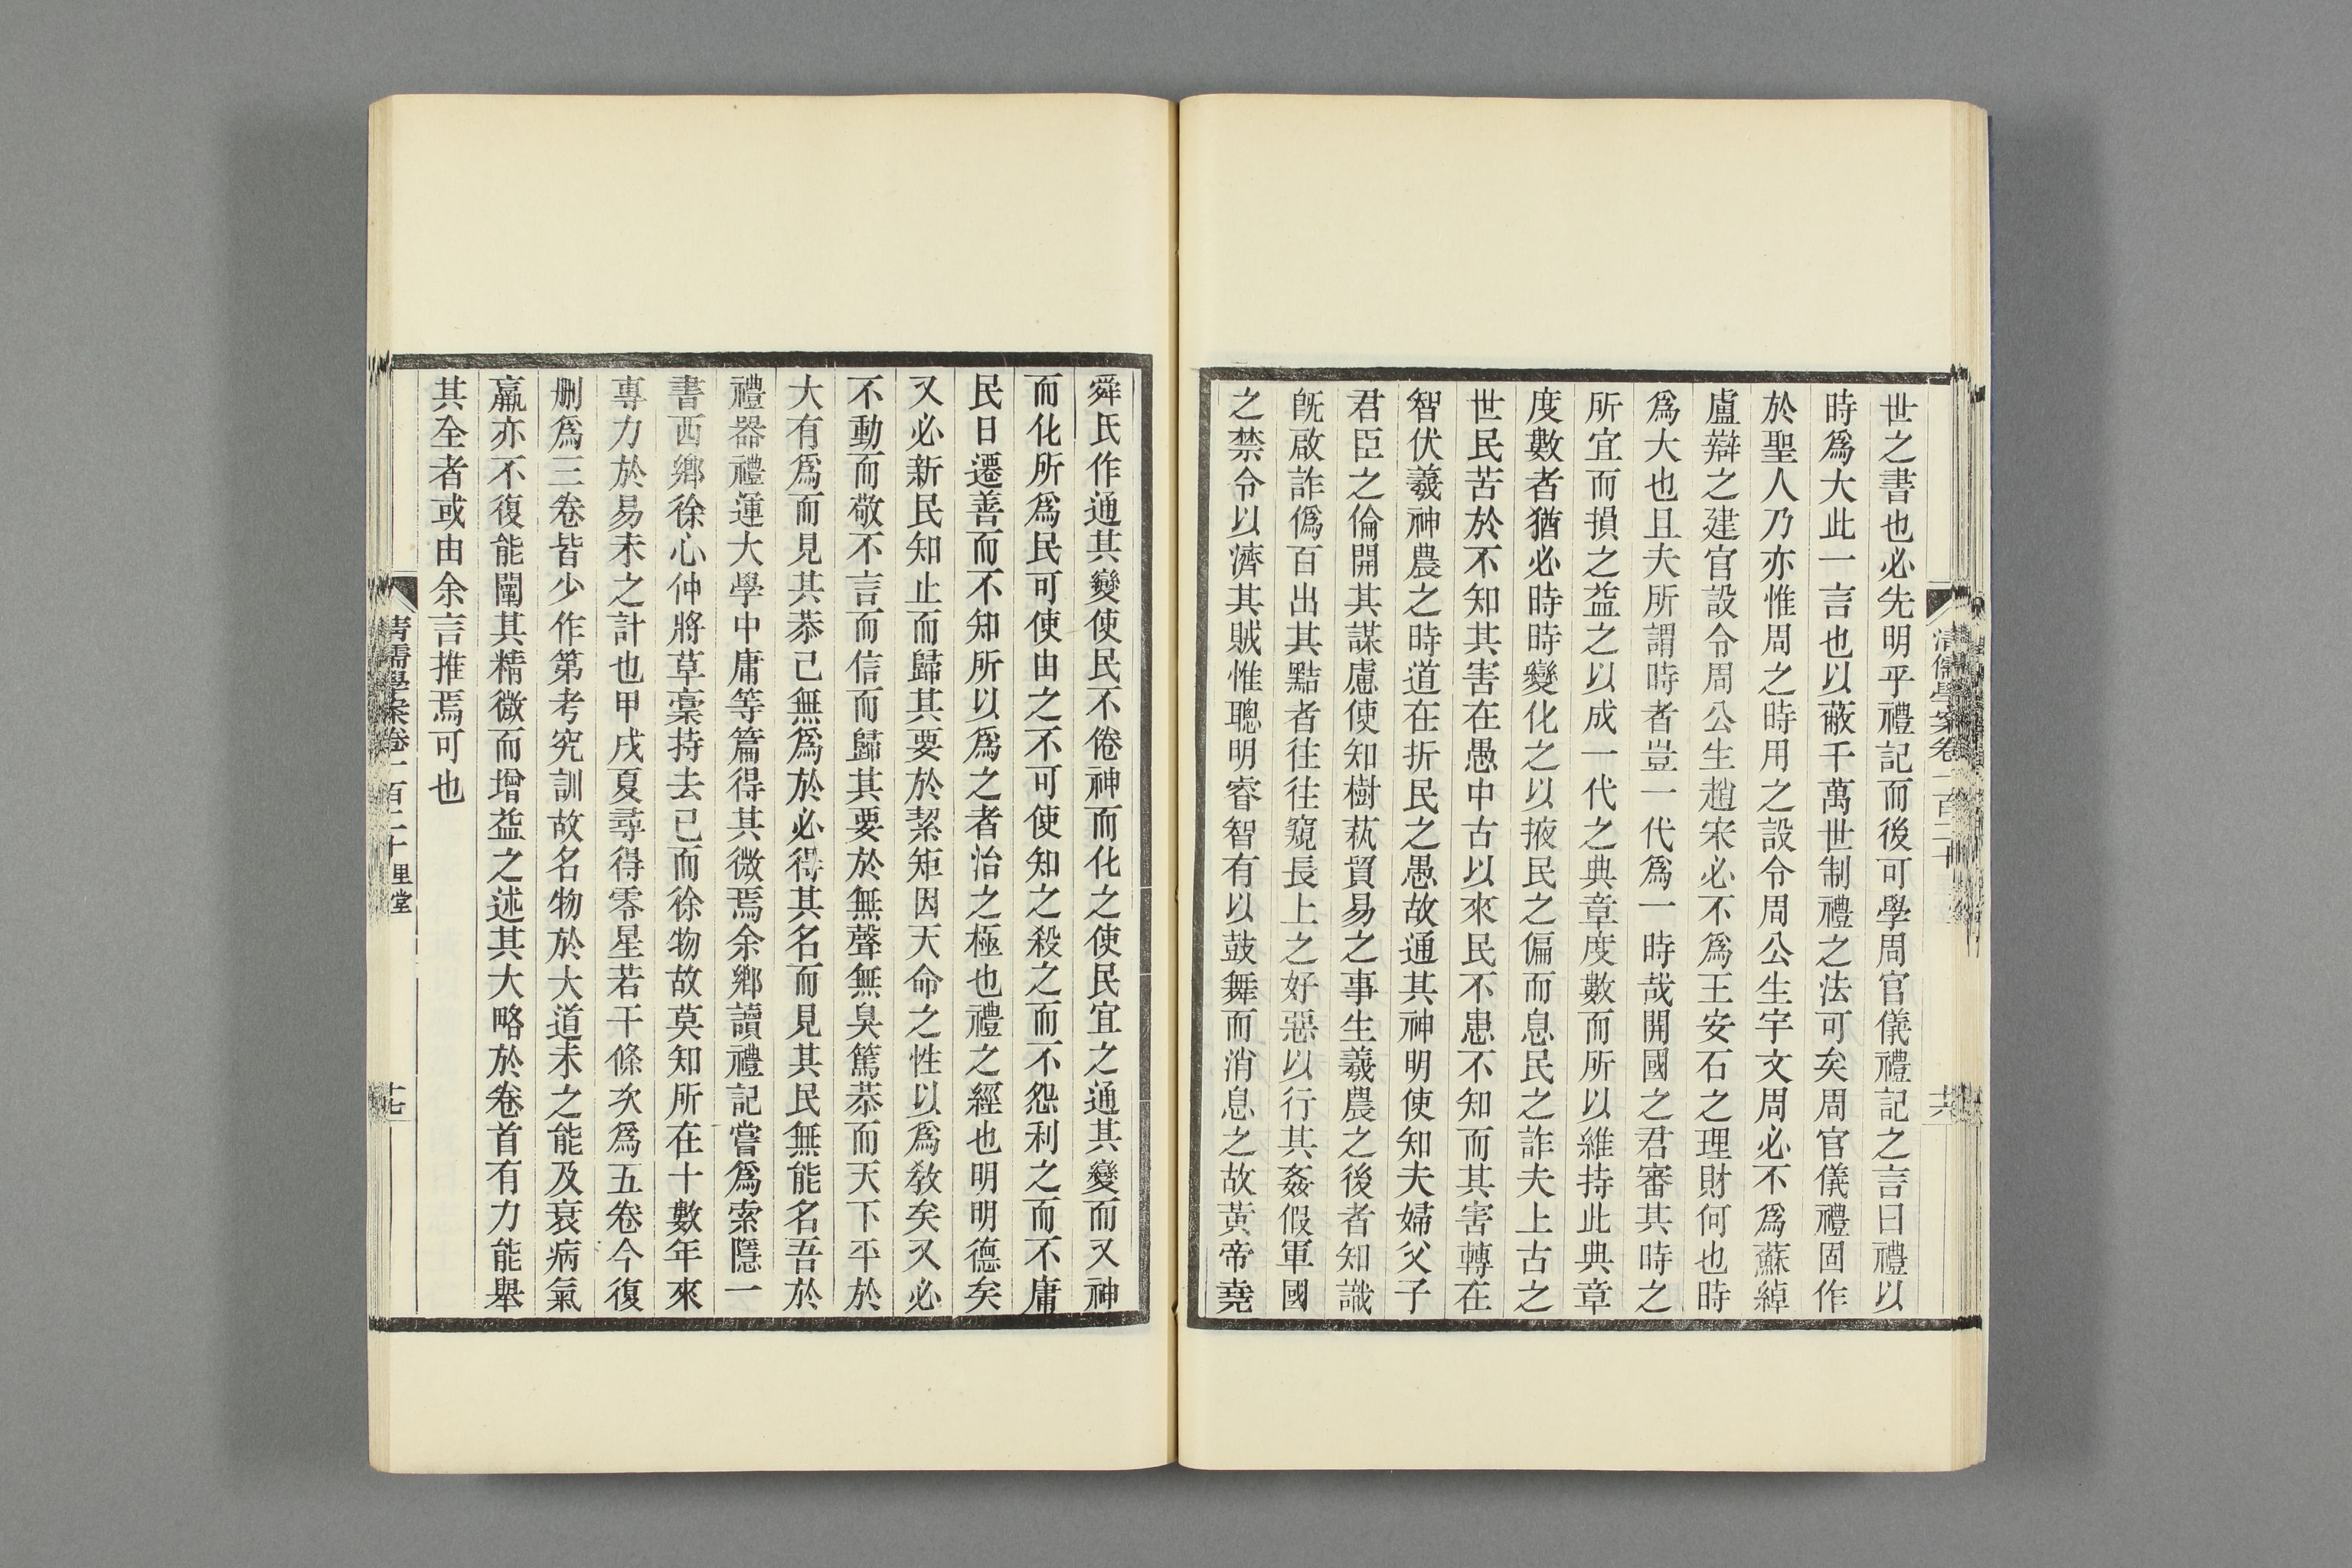 世之書也必先明乎禮記而後可學周官儀禮記之言曰禮以
時爲大此一言也以蔽千萬世制禮之法可矣周官儀禮固作
於聖人乃亦惟周之時用之設令周公生宇文周必不爲蘇綽
盧辯之建官設令周公生趙宋必不爲王安石之理財何也時
爲大也且夫所謂時者豈一代爲一時哉開國之君審其時之
所宜而損之益之以成一代之典章度數而所以維持此典章
度數者猶必時時變化之以掖民之偏而息民之詐夫上古之
世民苦於不知其害在愚中古以來民不患不知而其害轉在
智伏羲神農之時道在折民之愚故通其神明使知夫婦父子
君臣之倫開其謀慮使知樹蓺貿易之事生羲農之後者知識
旣啟詐僞百出其黠者往往窺長上之好惡以行其姦假軍國
之禁令以濟其賊惟聰明睿智有以鼓舞而消息之故黃帝堯
清儒學案卷一百二十
十六
舜氏作通其變使民不倦神而化之使民宜之通其變而又神
而化所爲民可使由之不可使知之殺之而不怨利之而不庸
民日遷善而不知所以爲之者治之極也禮之經也明明德矣
又必新民知止而歸其要於絜矩因天命之性以爲教矣又必
不動而敬不言而信而歸其要於無聲無臭篤恭而天下平於
大有爲而見其恭己無爲於必得其名而見其民無能名吾於
禮器禮運大學中庸等篇得其微焉余鄉讀禮記嘗爲索隱一
書西鄉徐心仲將草稾持去已而徐物故莫知所在十數年來
專力於易未之計也甲戌夏尋得零星若干條次爲五卷今復
删爲三卷皆少作第考究訓故名物於大道未之能及衰病氣
羸亦不復能闡其精微而增益之述其大略於卷首有力能舉
其全者或由余言推焉可也
清儒學案卷一百二十 里堂
十七